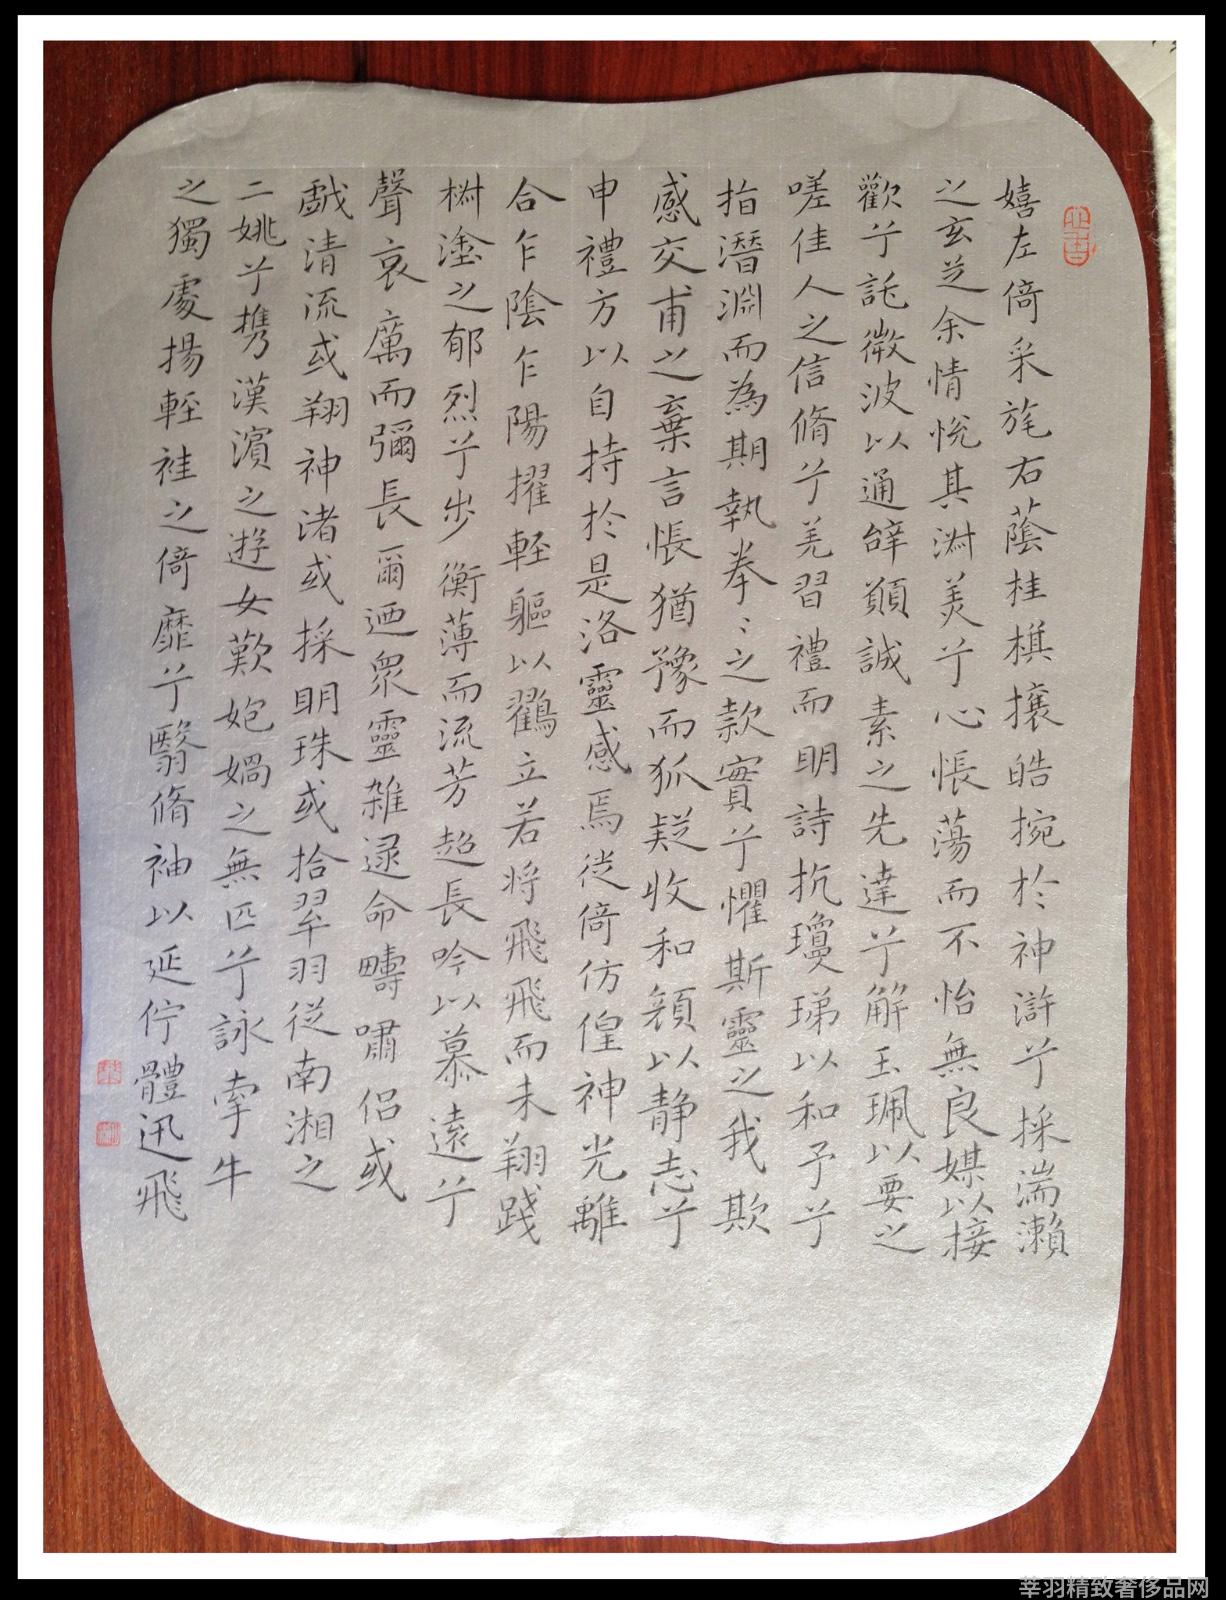 嬉左倚采旄右蔭桂棋攘皓捥於神滸兮採湍瀨
之玄芝余情悅其淑美兮心悵蕩而不怡無良媒以接
歡兮託微波以通辝願誠素之先達兮解玉珮以要之
嗟佳人之信脩兮羌習禮而明詩抗瓊珶以和予兮
指潛淵而為期執拳〻之款實兮懼斯靈之我欺
感交甫之棄言悵猶豫而狐疑收和顏以静志兮
申禮方以自持於是洛靈感焉徙倚仿偟神光離
合乍陰乍陽擢輕軀以鶴立若將飛飛而未翔踐
椒塗之郁烈兮步衡薄而流芳超長吟以慕遠兮
聲哀厲而彌長爾迺衆靈雜遝命疇嘯侶或
戲清流或翔神渚或採明珠或拾翠羽従南湘之
二姚兮攜漢濱之遊女歎匏媧之無匹兮詠牽牛
之獨處揚輕袿之倚靡兮翳脩袖以延佇體迅飛
莘羽精致奢侈品网